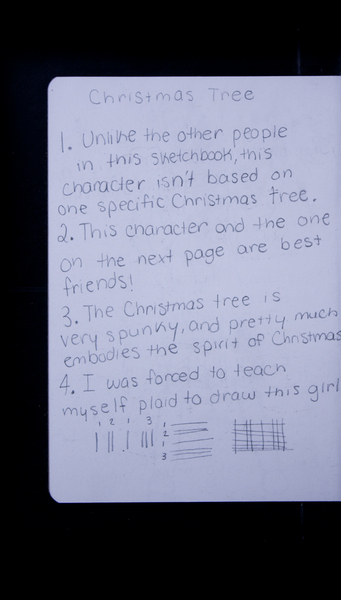 Christmas Tree
1. Unlike the other people
in this sketchbook, this
character isn't based on
one specific Christmas tree.
2. This character and the one
on the next page are best
friends!
3. The Christmas tree is
very spunky, and pretty much
embodies the spirit of Christmas
4. I was forced to teach
myself plaid to draw this girl
1 2 1 3
1
2
1
3